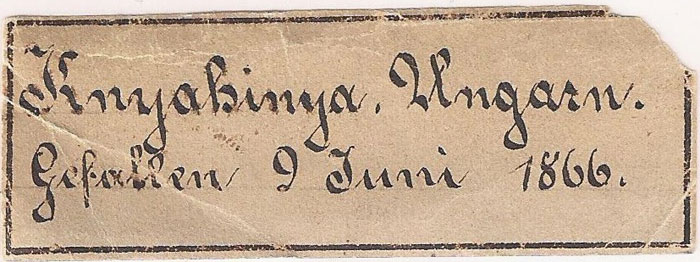 Knyahinya. Ungarn.
Gefallen 9 Juni 1866.